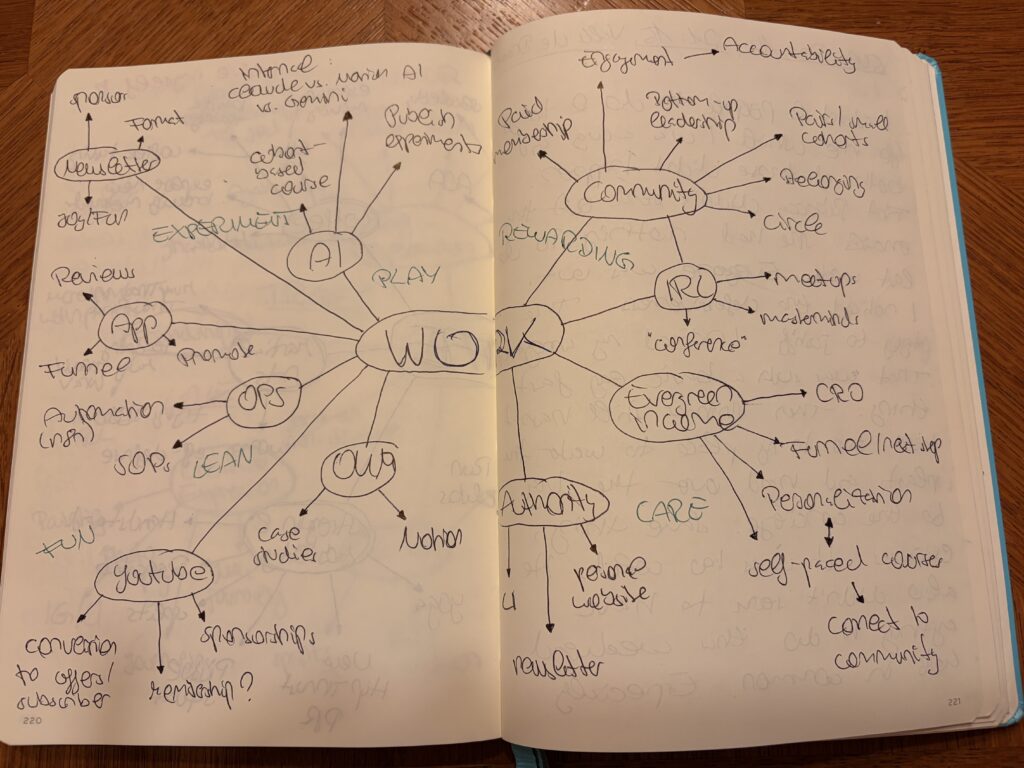 sponsor
Format
Newsletter
Internal:
Claude vs. Notion AI
vs. Gemini
cohort-
based
course
Publish
experiments
EXPERIMENT
AI
PLAY
Reviews
App
Funnel
Promote
OPS
Automation
(n8n)
SOPs
LEAN
case
studies
Notion
FUN
youtube
conversion
to offers/
subscriber
membership?
sponsorships
220
WORK
Engagement
Accountability
Paid
membership
Bottom-up
leadership
Paid/small
cohorts
Community
Belonging
Circle
REWARDING
IRL
meetups
masterminds
"conference"
Evergreen
income
CRO
Funnel/next step
Personalization
self-paced courses
connect to
community
Authority
CARE
LI
newsletter
personal
website
221